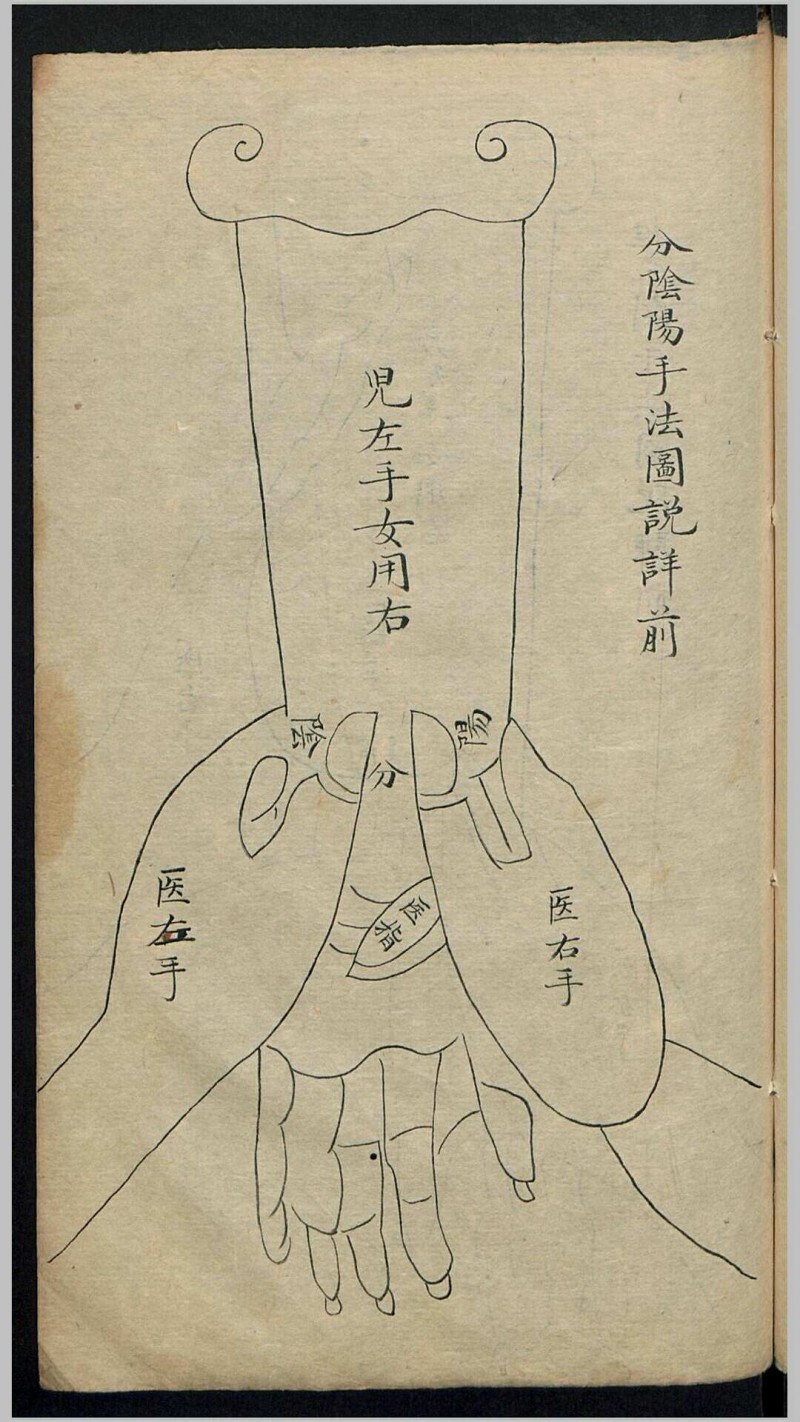 分陰陽手法圖説詳前
児左手女用右
陽
分
陰
医指
医右手
医左手